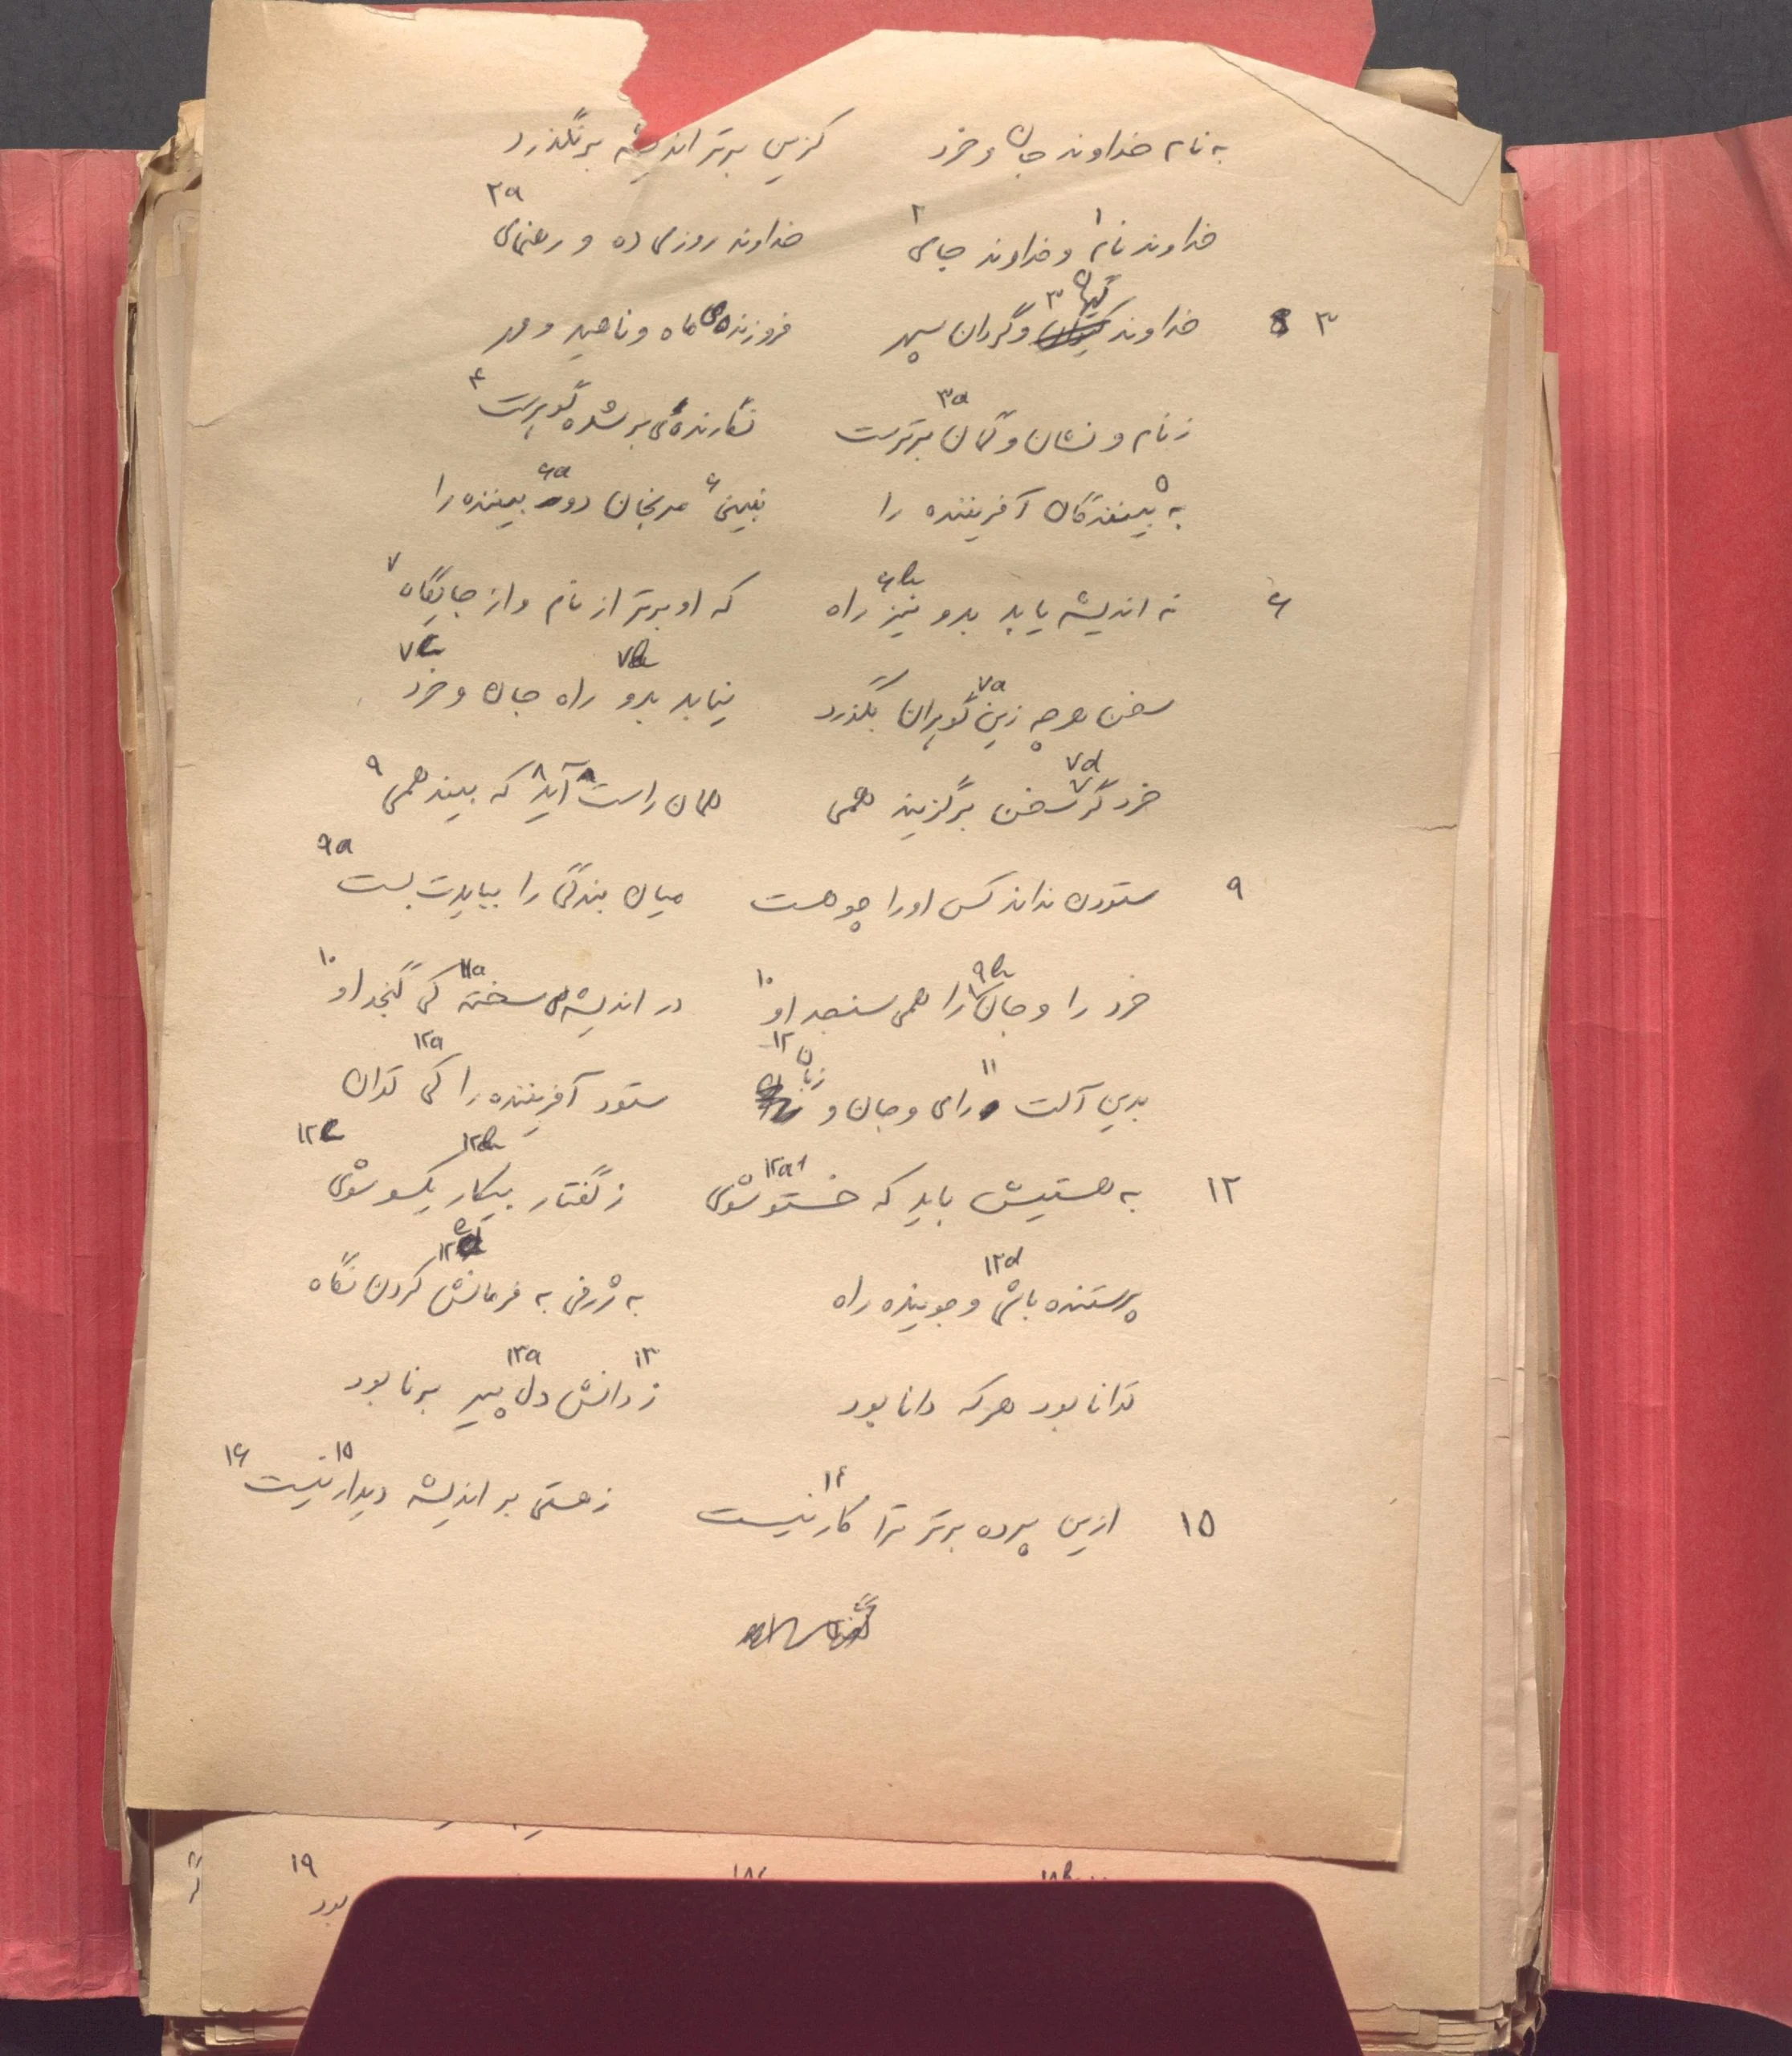 به نام خداوند جان و خرد کزین برتر اندیشه برنگذرد
۲a
خداوند نام۱ و خداوند جای۲ خداوند روزی ده و رهنمای
۳ خداوند گیهان۳ و گردان سپهر فروزنده‌ی ماه و ناهید و مهر
ز نام و نشان و گمان برترست۳a نگارنده‌ی بر شده گوهرست۴
به بینندگان۵ آفریننده را نبینی۶ مرنجان دو۶a بیننده را
۶ نه اندیشه یابد بدو نیز۶b راه که او برتر از نام و از جایگاه۷
سخن هرچه زین۷a گوهران بگذرد نیابد بدو۷b راه جان و خرد۷c
خرد گر۷d سخن برگزیند همی همان راست آید۸ که بیند همی۹
۹ ستودن نداند کس او را چو هست میان بندگی را ببایدت بست۹a
خرد را و جان۹b را همی سنجد او۱۰ در اندیشه‌ی سخته۱۱a کی گنجد او۱۰
بدین آلت رای۱۱ و جان و زبان۱۲ ستود آفریننده را کی توان۱۲a
۱۲ به هستیش باید که خستو شوی۱۲a۱ ز گفتار بیکار۱۲b یکسو شوی۱۲c
پرستنده باش۱۲d و جوینده راه به ژرفی به فرمانش۱۲e کردن نگاه
توانا بود هرکه دانا بود ز۱۳ دانش دل۱۳a پیر برنا بود
۱۵ ازین پرده برتر ترا کار۱۴ نیست ز هستی بر اندیشه دیدار۱۵ نیست۱۶
۱۹
بود